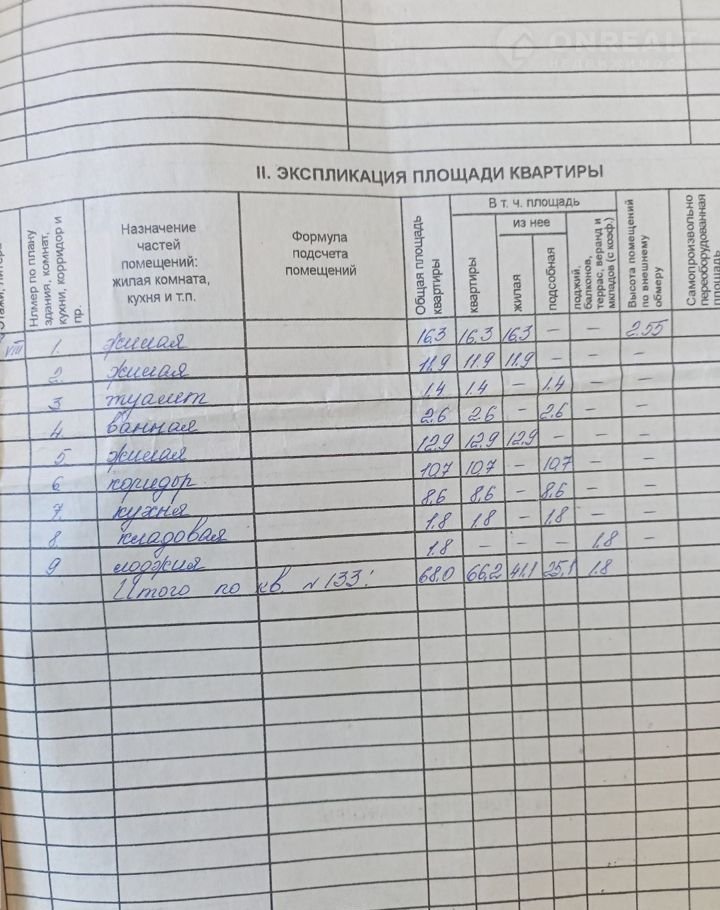 ONREALT
НЕДВИЖИМОСТЬ
II. ЭКСПЛИКАЦИЯ ПЛОЩАДИ КВАРТИРЫ
Этажи, литера
Нлмер по плану здания, комнат, кухни, корридор и пр.
Назначение частей помещений: жилая комната, кухня и т.п.
Формула подсчета помещений
Общая площадь квартиры
В т. ч. площадь
квартиры
из нее
жилая
подсобная
лоджий, балконов, террас, веранд и мкладов (с коэф.)
Высота помещений по внешнему обмеру
Самопроизвольно переоборудованная площадь
VIII 1. жилая 16,3 16,3 16,3 – – 2.55
2. жилая 11.9 11.9 11.9 – – –
3 туалет 1.4 1.4 – 1.4 – –
4 ванная 2.6 2.6 – 2.6 – –
5 жилая 12,9 12,9 12,9 – – –
6 коридор 10,7 10,7 – 10,7 – –
7. кухня 8,6 8,6 – 8,6 – –
8 кладовая 1.8 1.8 – 1.8 – –
9 лоджия 1.8 – – – 1.8 –
Итого по кв. №133: 68,0 66,2 41,1 25,1 1.8